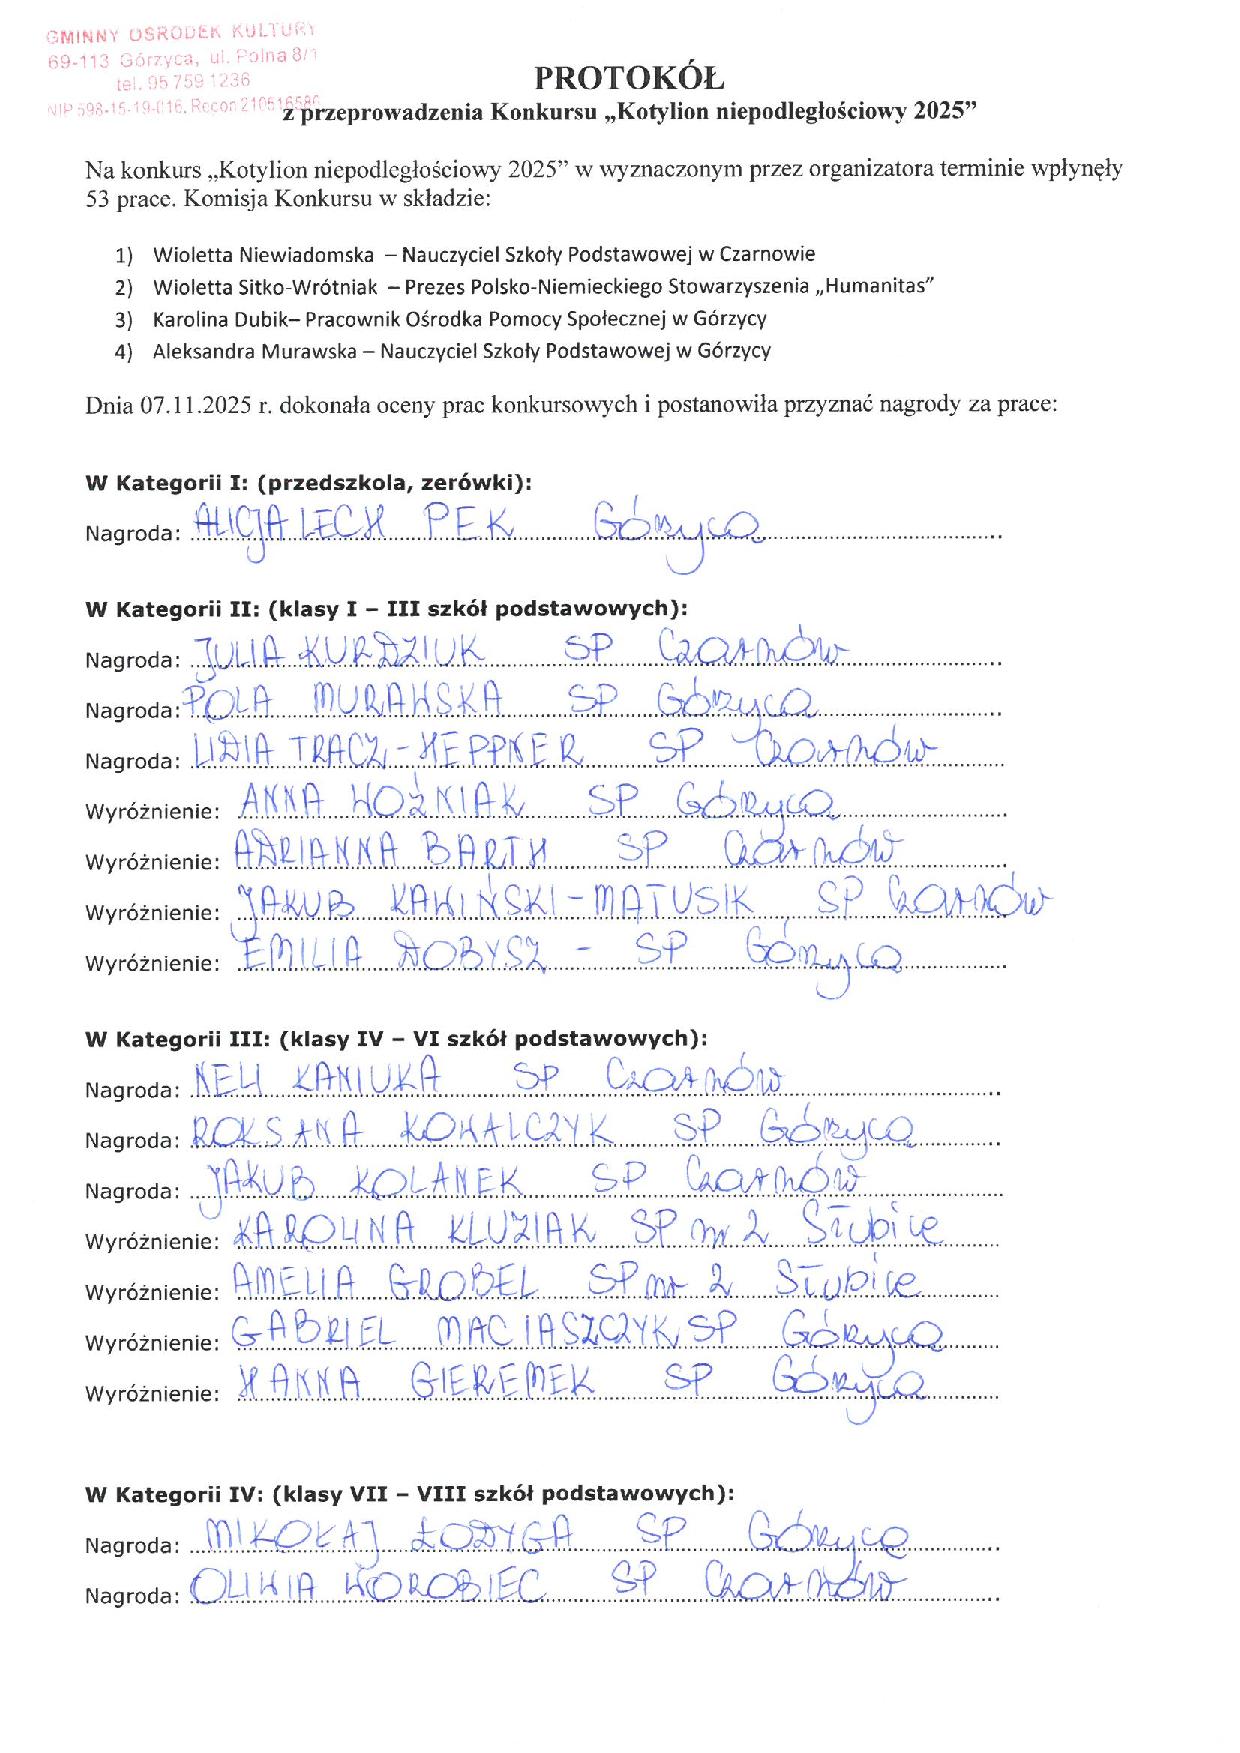 GMINNY OŚRODEK KULTURY
69-113 Górzyca, ul. Polna 8/1
tel. 95 759 1236
NIP 598-15-19-016, Regon 210516586
PROTOKÓŁ
z przeprowadzenia Konkursu „Kotylion niepodległościowy 2025”
Na konkurs „Kotylion niepodległościowy 2025” w wyznaczonym przez organizatora terminie wpłynęły
53 prace. Komisja Konkursu w składzie:
1) Wioletta Niewiadomska – Nauczyciel Szkoły Podstawowej w Czarnowie
2) Wioletta Sitko-Wrótniak – Prezes Polsko-Niemieckiego Stowarzyszenia „Humanitas”
3) Karolina Dubik– Pracownik Ośrodka Pomocy Społecznej w Górzycy
4) Aleksandra Murawska – Nauczyciel Szkoły Podstawowej w Górzycy
Dnia 07.11.2025 r. dokonała oceny prac konkursowych i postanowiła przyznać nagrody za prace:
W Kategorii I: (przedszkola, zerówki):
Nagroda: ALICJA LECH PEK Górzyca
W Kategorii II: (klasy I – III szkół podstawowych):
Nagroda: JULIA KURDZIUK SP Czarnów
Nagroda: POLA MURAWSKA SP Górzyca
Nagroda: LIDIA TRACZ-HEPPNER SP Czarnów
Wyróżnienie: ANNA WOŹNIAK SP Górzyca
Wyróżnienie: ADRIANNA BARTH SP Czarnów
Wyróżnienie: JAKUB KAWIŃSKI-MATUSIK SP Czarnów
Wyróżnienie: EMILIA DOBYSZ - SP Górzyca
W Kategorii III: (klasy IV – VI szkół podstawowych):
Nagroda: NELI KANIUKA SP Czarnów
Nagroda: ROKSANA KOWALCZYK SP Górzyca
Nagroda: JAKUB KOLANEK SP Czarnów
Wyróżnienie: KAROLINA KLUZIAK SP nr 2 Słubice
Wyróżnienie: AMELIA GROBEL SP nr 2 Słubice
Wyróżnienie: GABRIEL MACIASZCZYK, SP Górzyca
Wyróżnienie: HANNA GIEREMEK SP Górzyca
W Kategorii IV: (klasy VII – VIII szkół podstawowych):
Nagroda: MIKOŁAJ ŁODYGA SP Górzyca
Nagroda: OLIWIA WOROBIEC SP Czarnów